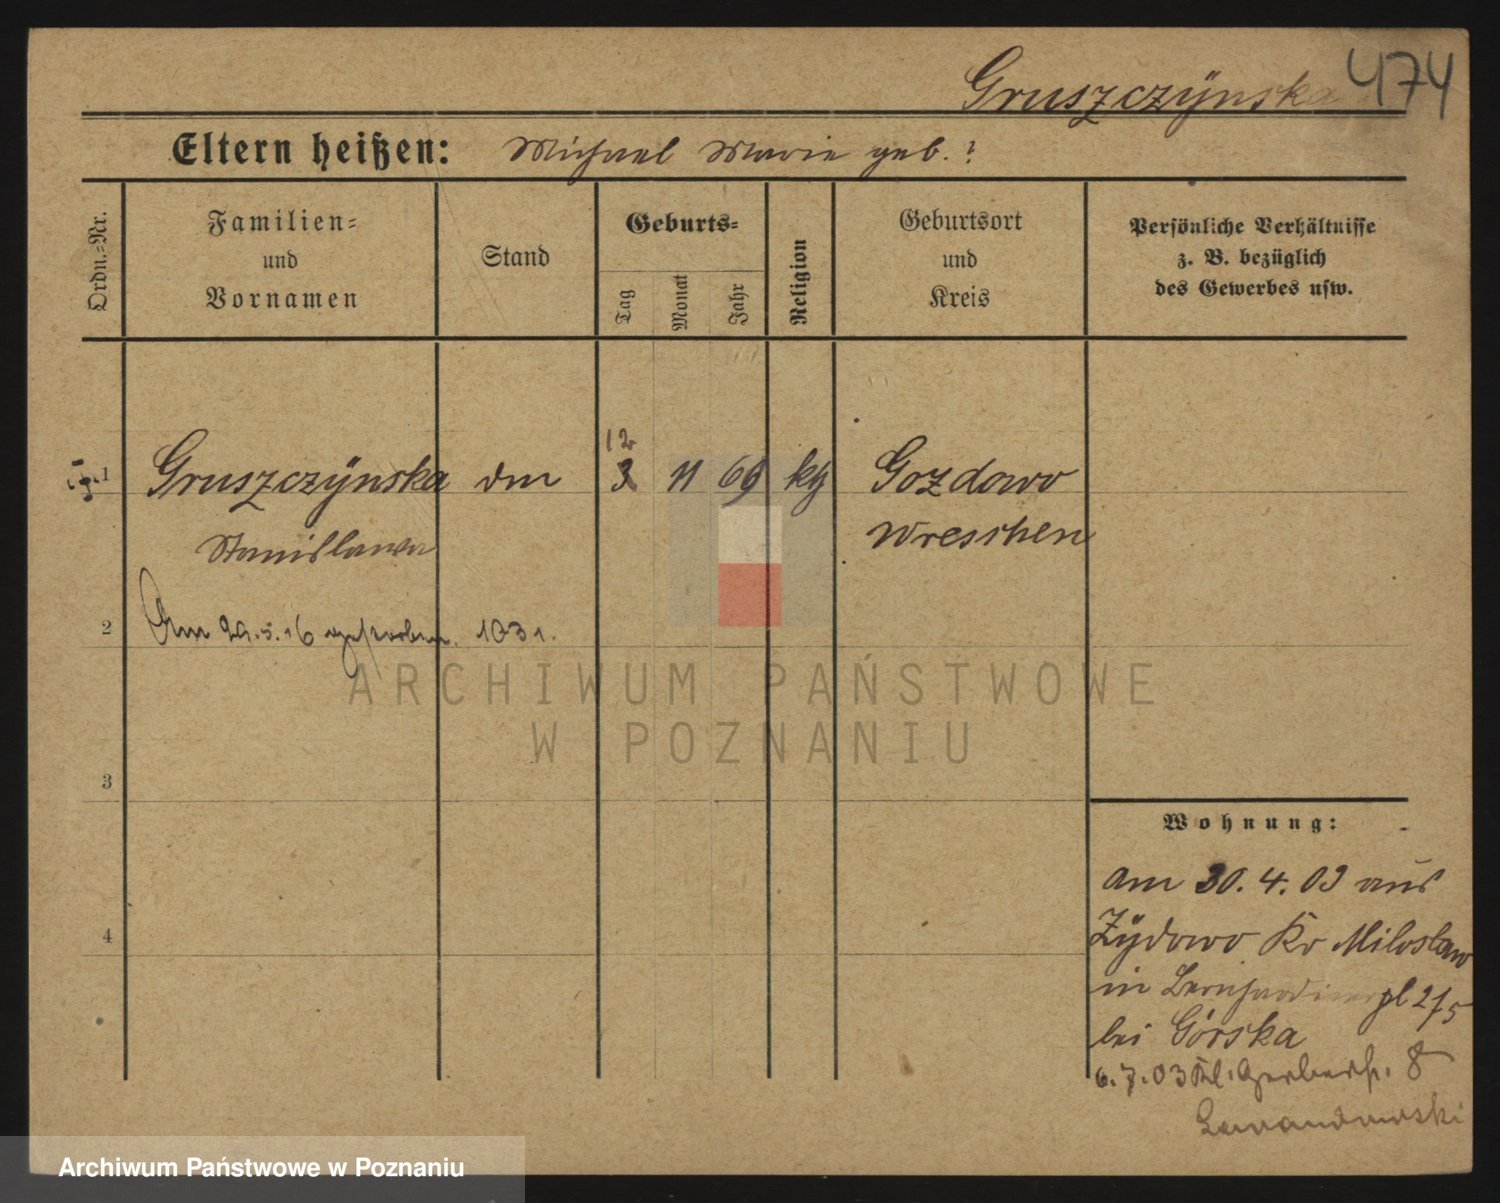 474
Gruszczÿnska
Eltern heißen: Michael Marie geb. ?
Ordn.=Nr.
Familien=
und
Vornamen
Stand
Geburts=
Tag
Monat
Jahr
Religion
Geburtsort
und
Kreis
Persönliche Verhältnisse
z. B. bezüglich
des Gewerbes usw.
12
1 Gruszczÿnska 3 11 69 Gozdowo
Stanislawa Wreschen
2 Am 29.5.16 gestorben. 1031.
ARCHIWUM PAŃSTWOWE
W POZNANIU
3
Wohnung:
4
am 30.4.03 aus
Zÿdowo Kr Miloslaw
in Bernhardinerpl 2/5
bei Górska
6.7.03 Kl. Gerberst. 8
Lewandowski
Archiwum Państwowe w Poznaniu